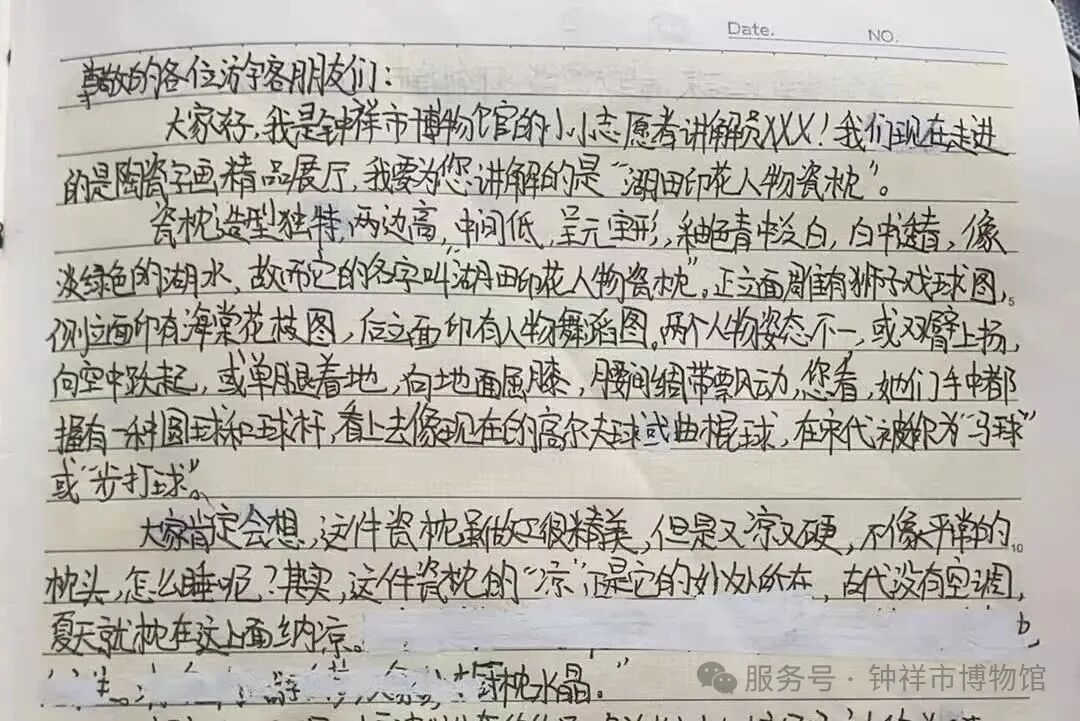 Date.
NO.
尊敬的各位游客朋友们：
大家好，我是钟祥市博物馆的小小志愿者讲解员XXX！我们现在走进
的是陶瓷字画精品展厅，我要为您讲解的是“湖田印花人物瓷枕”。
瓷枕造型独特，两边高，中间低，呈元宝形，釉色青中泛白，白中透青，像
淡绿色的湖水，故而它的名字叫“湖田印花人物瓷枕”。正立面雕有狮子戏球图，
5
侧立面印有海棠花枝图，后立面印有人物舞蹈图。两个人物姿态不一，或双臂上扬，
向空中跃起，或单腿着地，向地面屈膝，腰间绸带飘动，您看，她们手中都
握有一料圆球和球杆，看上去像现在的高尔夫球或曲棍球，在宋代被称为“马球”
或“步打球”。
大家肯定会想，这件瓷枕虽做工很精美，但是又凉又硬，不像平常的
10
枕头，怎么睡呢？其实，这件瓷枕的“凉”正是它的妙处所在，古代没有空调，
夏天就枕在这上面纳凉。
枕水晶。”
服务号·钟祥市博物馆